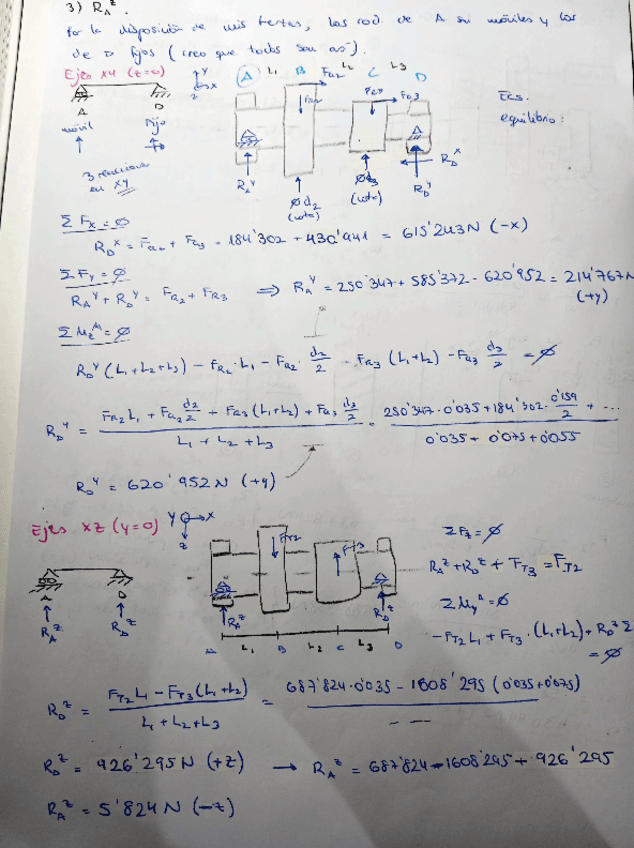 3) R_A^z.
Por la disposición de mis fuerzas, los rod. de A son móviles y los
de D fijos (creo que todos son así).
Ejes XY (z=0)
Y
X
Z
A L1 B Fa2 L2 C L3 D
Fr2 Fr3 Fa3
Ecs.
equilibrio:
A D
móvil fijo
3 reacciones
en XY
R_A^Y
Ød2
(cota)
Ød3
(cota)
R_D^Y
R_D^X
ΣFx = Ø
R_D^X = Fa2 + Fa3 = 184'302 + 430'941 = 615'243 N (-X)
ΣFy = Ø
R_A^Y + R_D^Y = FR2 + FR3 ⇒ R_A^Y = 250'347 + 585'372 - 620'952 = 214'767 N
(+y)
ΣM_z^A = Ø
R_D^Y (L1+L2+L3) - FR2·L1 - Fa2· d2/2 - FR3 (L1+L2) - Fa3 d3/2 = Ø
R_D^Y = (FR2 L1 + Fa2 d2/2 + FR3 (L1+L2) + Fa3 d3/2) / (L1 + L2 + L3) = (250'347·0'035 + 184'302· 0'159/2 + ...) / (0'035 + 0'075 + 0'055)
R_D^Y = 620'952 N (+y)
Ejes XZ (y=0)
Y X
Z
Ft2 Ft3
A D
R_A^z R_D^z
R_A^z R_D^z
A L1 B L2 C L3 D
ΣFz = Ø
R_A^z + R_D^z + FT3 = FT2
ΣM_y^A = Ø
-FT2 L1 + FT3·(L1+L2) + R_D^z Σ
= Ø
R_D^z = (FT2 L1 - FT3 (L1+L2)) / (L1+L2+L3) = (687'824·0'035 - 1608'295 (0'035+0'075)) / - -
R_D^z = 926'295 N (+z) → R_A^z = 687'824 - 1608'295 + 926'295
R_A^z = 5'824 N (-z)